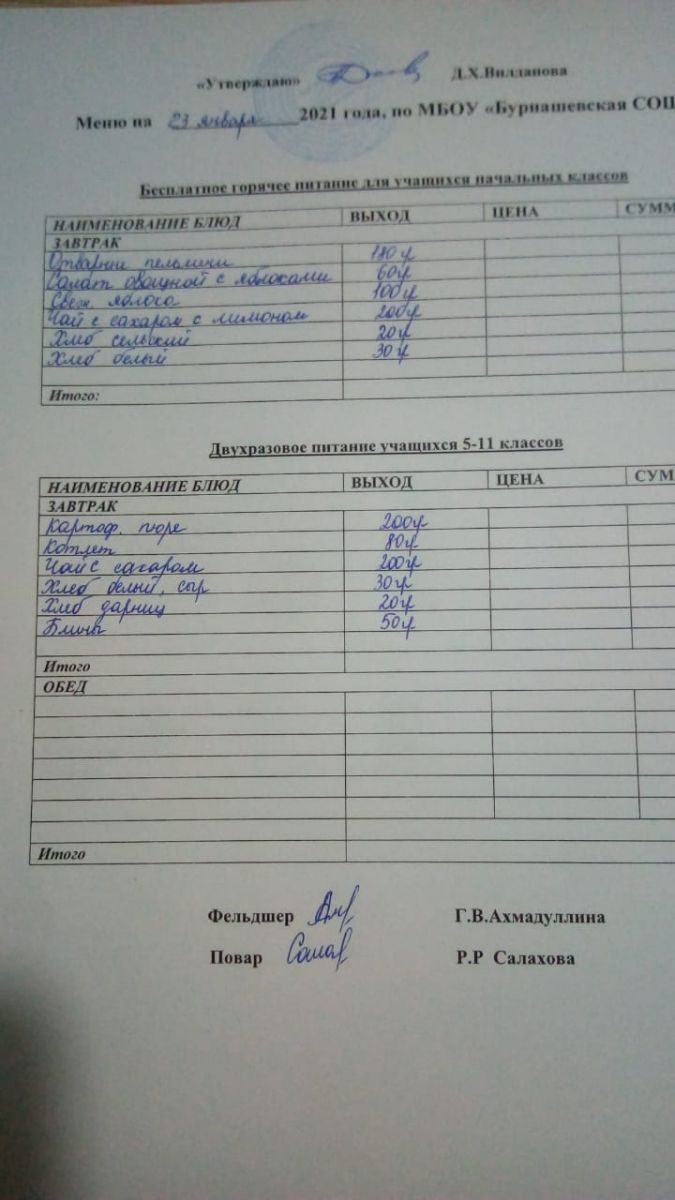 «Утверждаю» Д.Х.Вилданова
Меню на 23 января 2021 года, по МБОУ «Бурнашевская СОШ
Бесплатное горячее питание для учащихся начальных классов
НАИМЕНОВАНИЕ БЛЮД ВЫХОД ЦЕНА СУММ
ЗАВТРАК
Отварные пельмени 180 гр
Салат овощной с яблоками 60 гр
Свеж. яблоко 100 гр
Чай с сахаром с лимоном 200 гр
Хлеб сельский 20 гр
Хлеб белый 30 гр
Итого:
Двухразовое питание учащихся 5-11 классов
НАИМЕНОВАНИЕ БЛЮД ВЫХОД ЦЕНА СУММ
ЗАВТРАК
Картоф. пюре 200 гр
Котлет 80 гр
Чай с сахаром 200 гр
Хлеб белый, сыр 30 гр
Хлеб дарниц 20 гр
Блины 50 гр
Итого
ОБЕД
Итого
Фельдшер Г.В.Ахмадуллина
Повар Р.Р Салахова